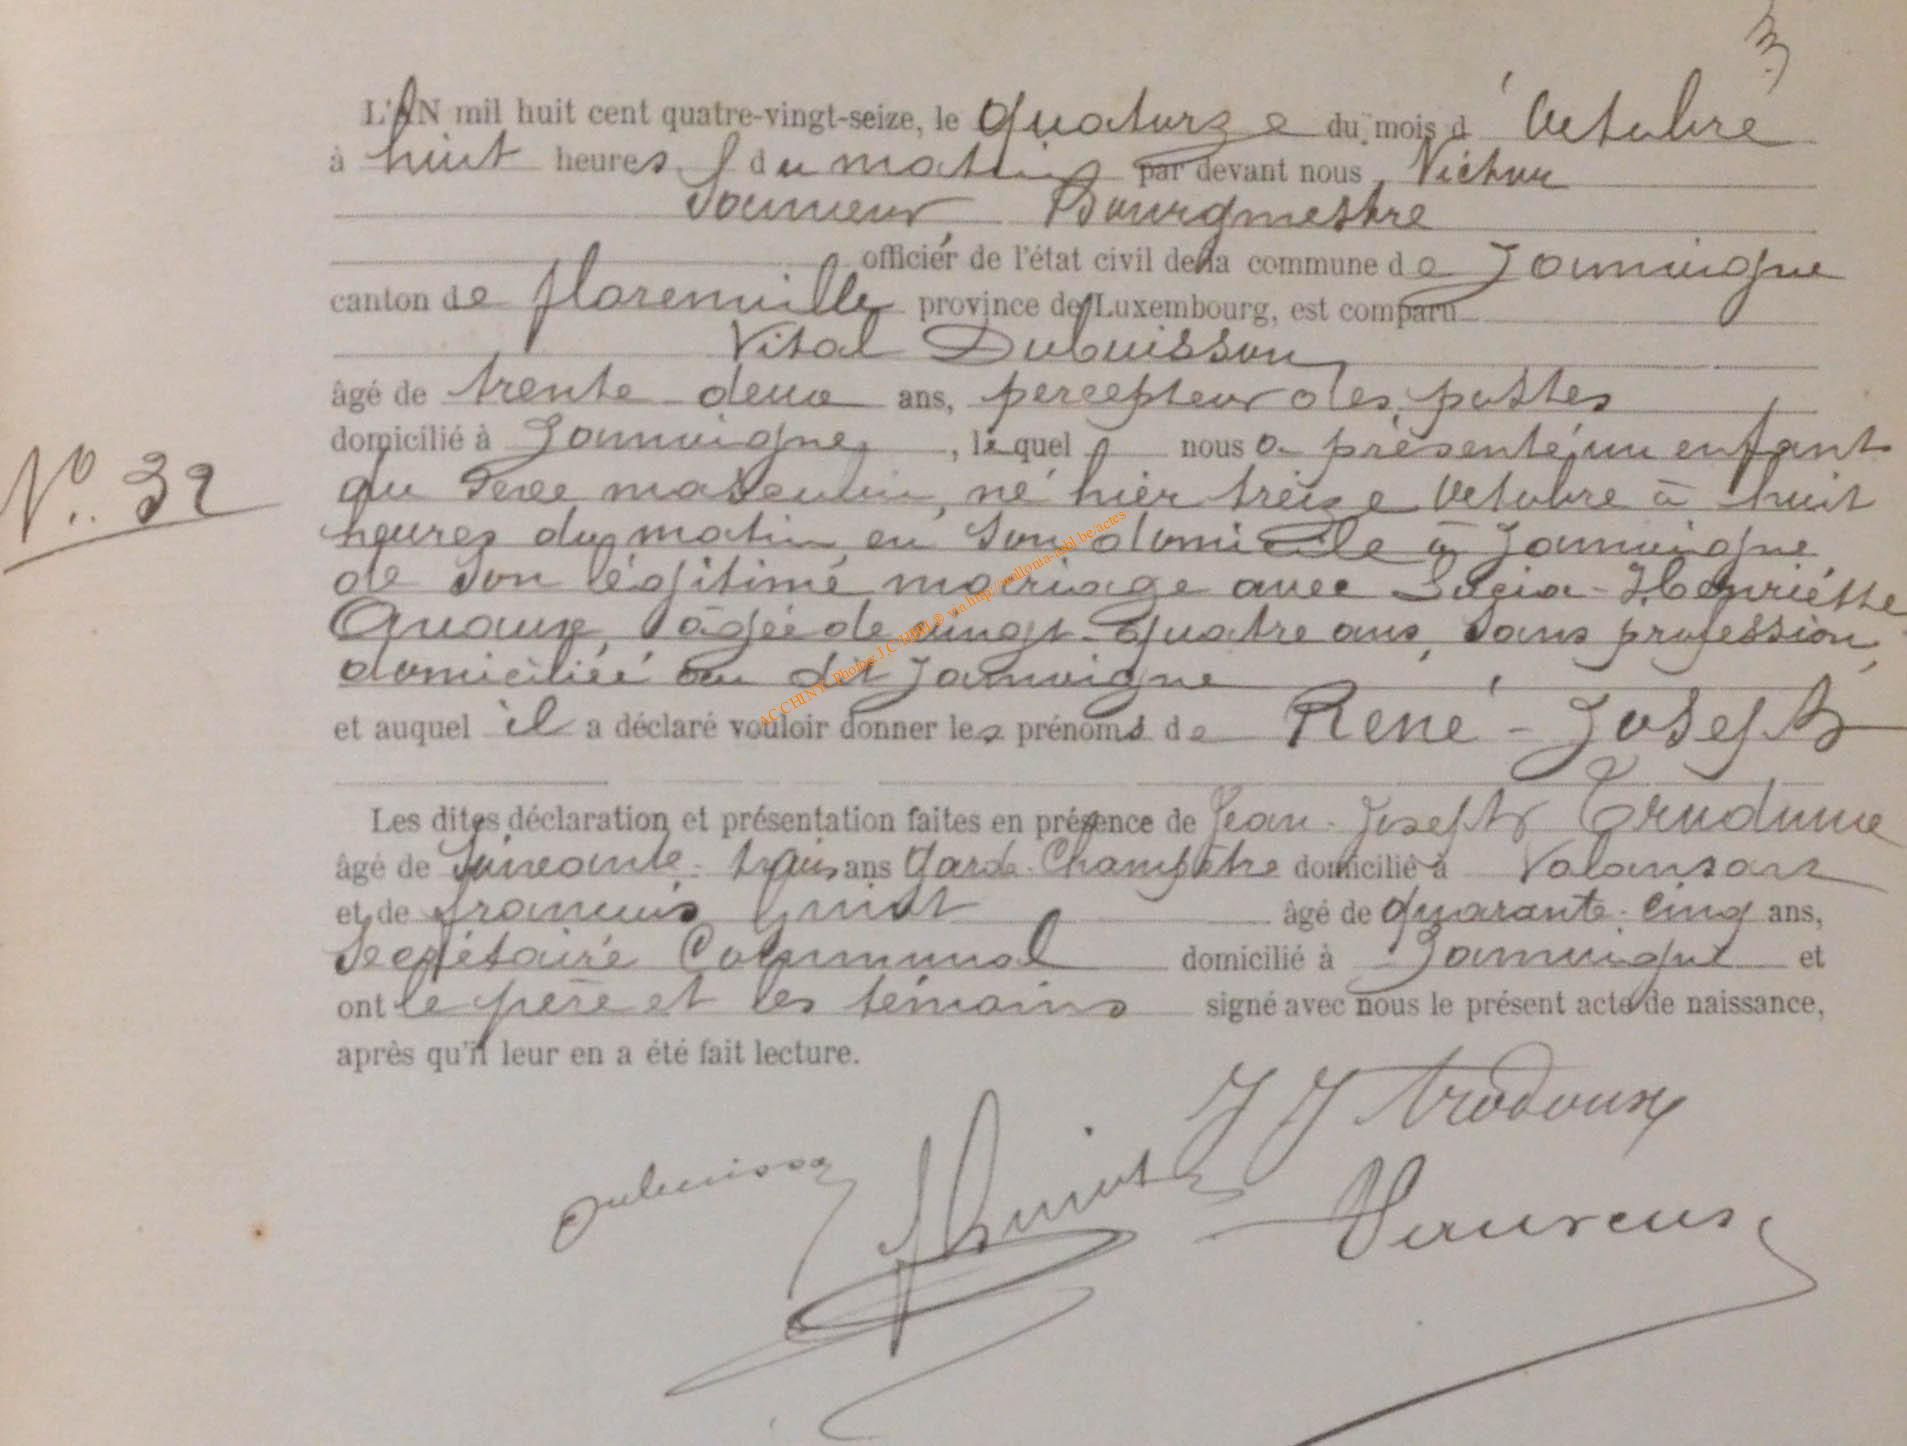 L'AN mil huit cent quatre-vingt-seize, le quatorze du mois d'Octobre
à huit heures du matin par devant nous Victor
Bourgmestre
officier de l'état civil de la commune de Jamoigne
canton de florenville province de Luxembourg, est comparu
Vital Dubuisson
âgé de trente deux ans, percepteur des postes
domicilié à Jamoigne, lequel nous a présenté un enfant
N° 32
du sexe masculin, né hier treize Octobre à huit
heures du matin en son domicile à Jamoigne
de son légitime mariage avec Lucia-Henriette
âgée de vingt-quatre ans, sans profession,
domiciliée au dit Jamoigne
et auquel il a déclaré vouloir donner les prénoms de René-Joseph
Les dites déclaration et présentation faites en présence de Jean-Joseph
âgé de cinquante-trois ans Garde-Champêtre domicilié à Valansart
et de François Guiot âgé de quarante-cinq ans,
Secrétaire Communal domicilié à Jamoigne et
ont le père et les témoins signé avec nous le présent acte de naissance,
après qu'il leur en a été fait lecture.
J J trodoux
Dubuisson
Guiot
ACCHINY Photos J.C. via http://wallonia-asbl.be/actes